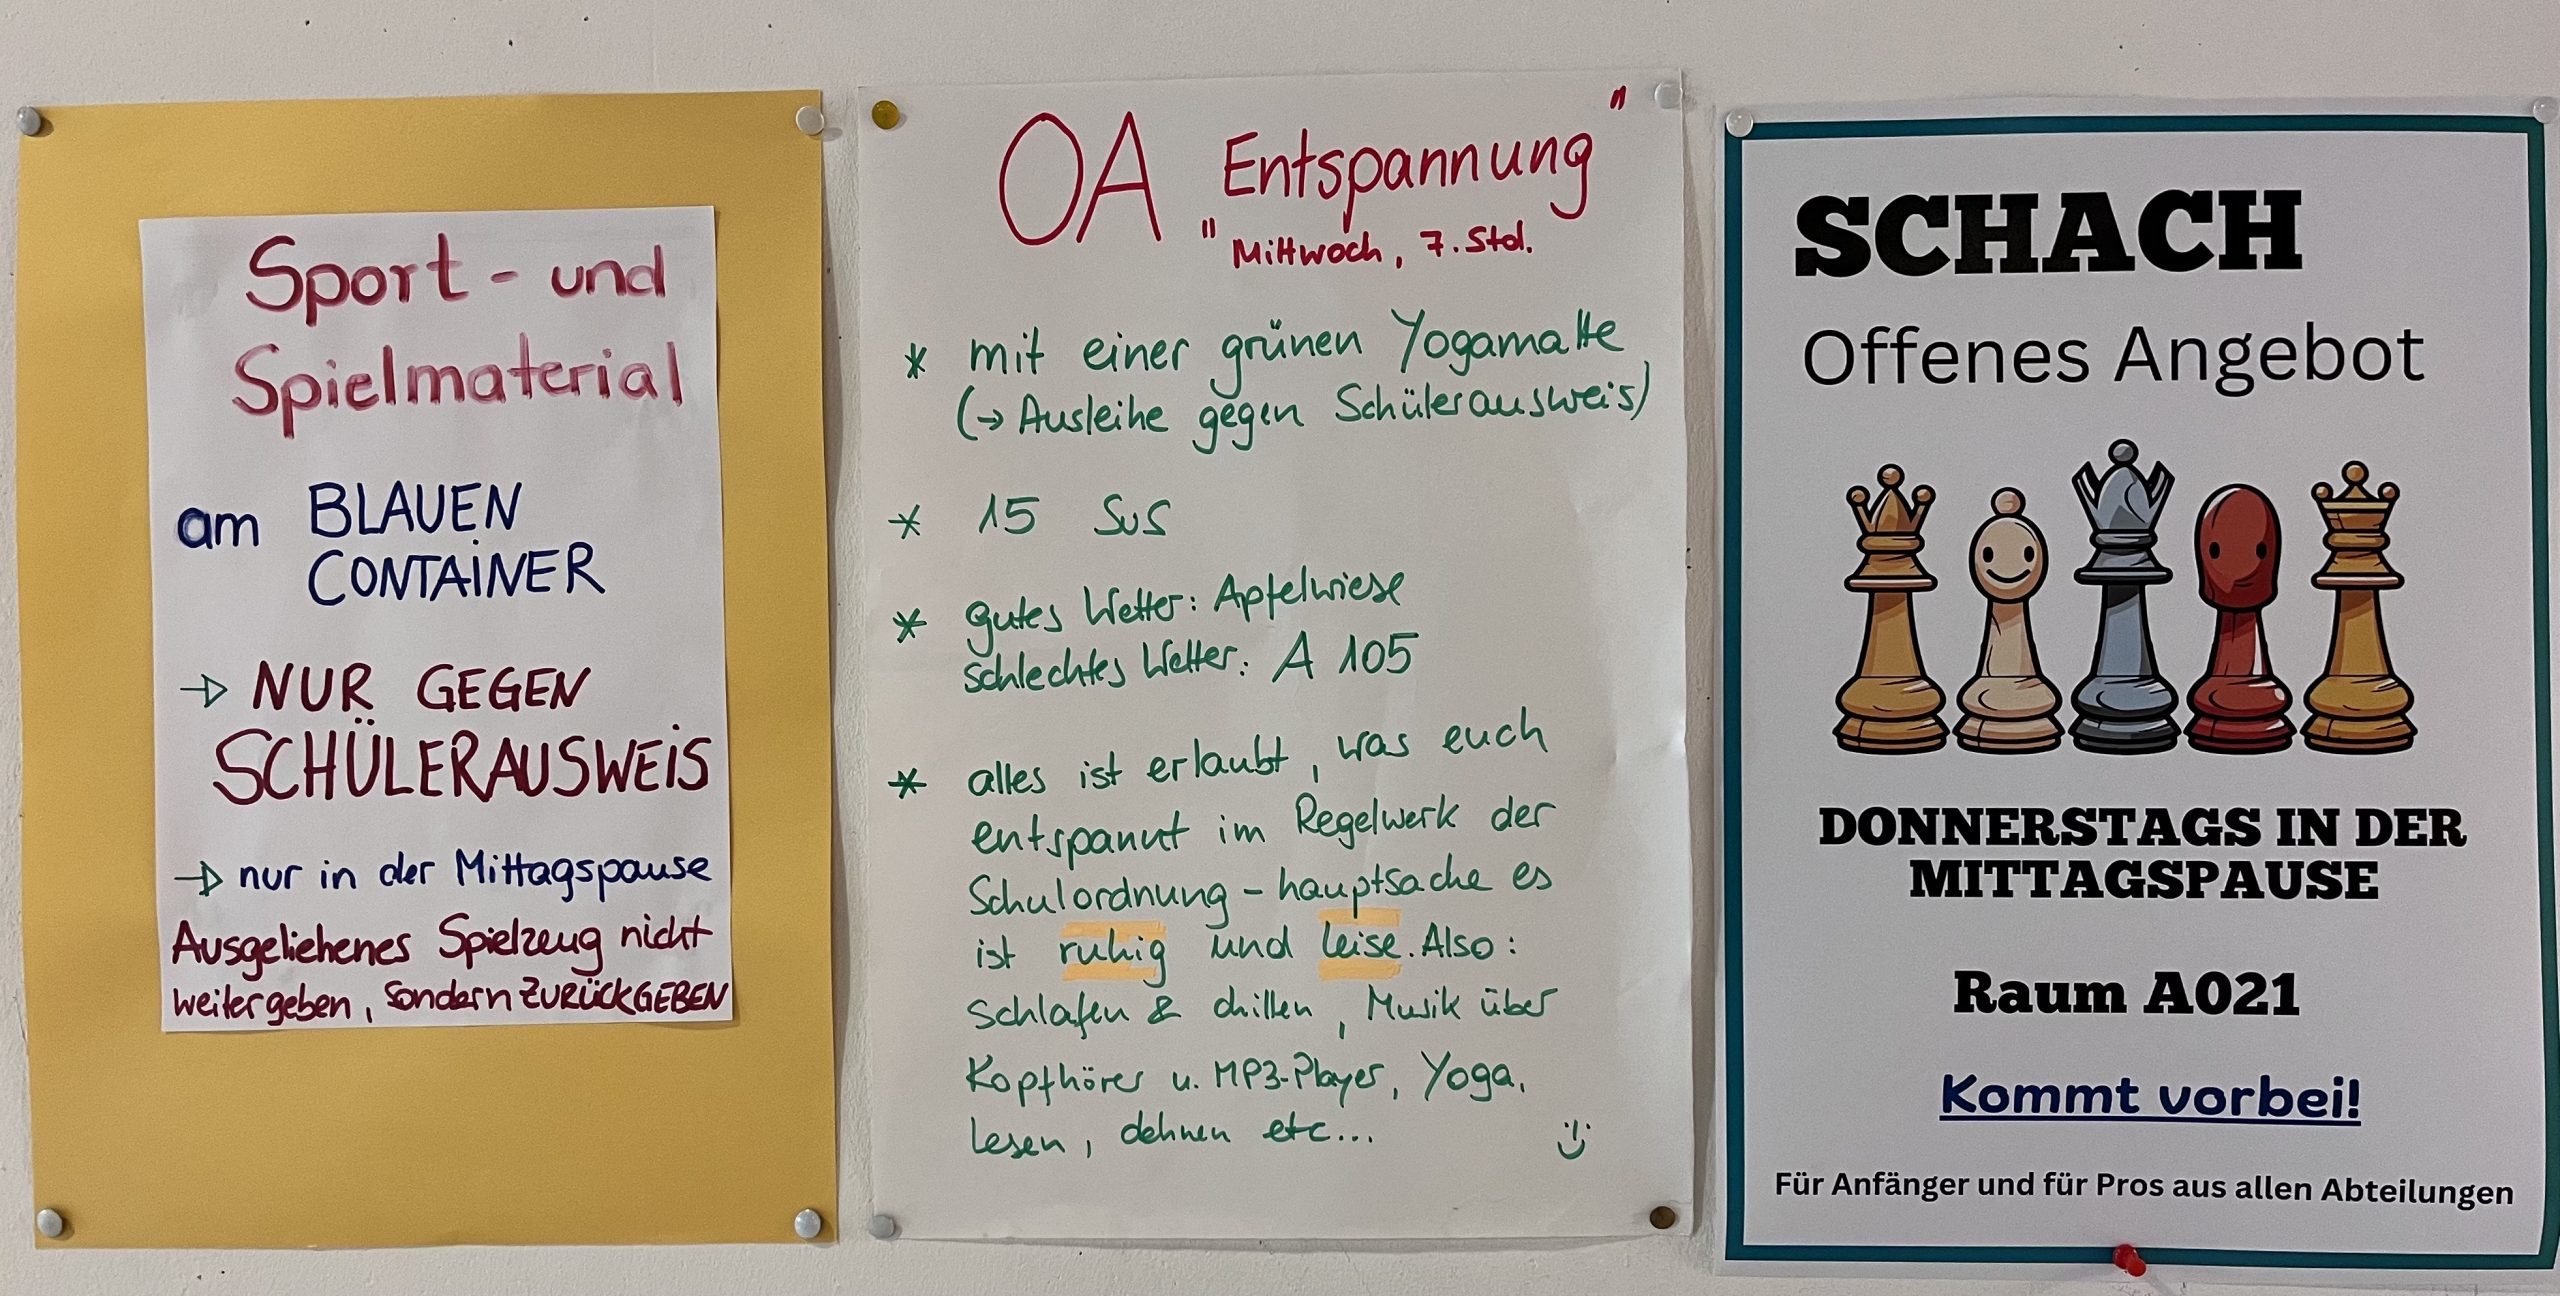 Sport - und
Spielmaterial
am BLAUEN
CONTAINER
→ NUR GEGEN
SCHÜLERAUSWEIS
→ nur in der Mittagspause
Ausgeliehenes Spielzeug nicht
weitergeben, sondern ZURÜCKGEBEN
OA "Entspannung"
Mittwoch, 7. Std.
* mit einer grünen Yogamatte
(→ Ausleihe gegen Schülerausweis)
* 15 SuS
* gutes Wetter: Apfelwiese
schlechtes Wetter: A 105
* alles ist erlaubt, was euch
entspannt im Regelwerk der
Schulordnung - hauptsache es
ist ruhig und leise. Also:
Schlafen & chillen, Musik über
Kopfhörer u. MP3-Player, Yoga,
Lesen, dehnen etc...
SCHACH
Offenes Angebot
DONNERSTAGS IN DER
MITTAGSPAUSE
Raum A021
Kommt vorbei!
Für Anfänger und für Pros aus allen Abteilungen